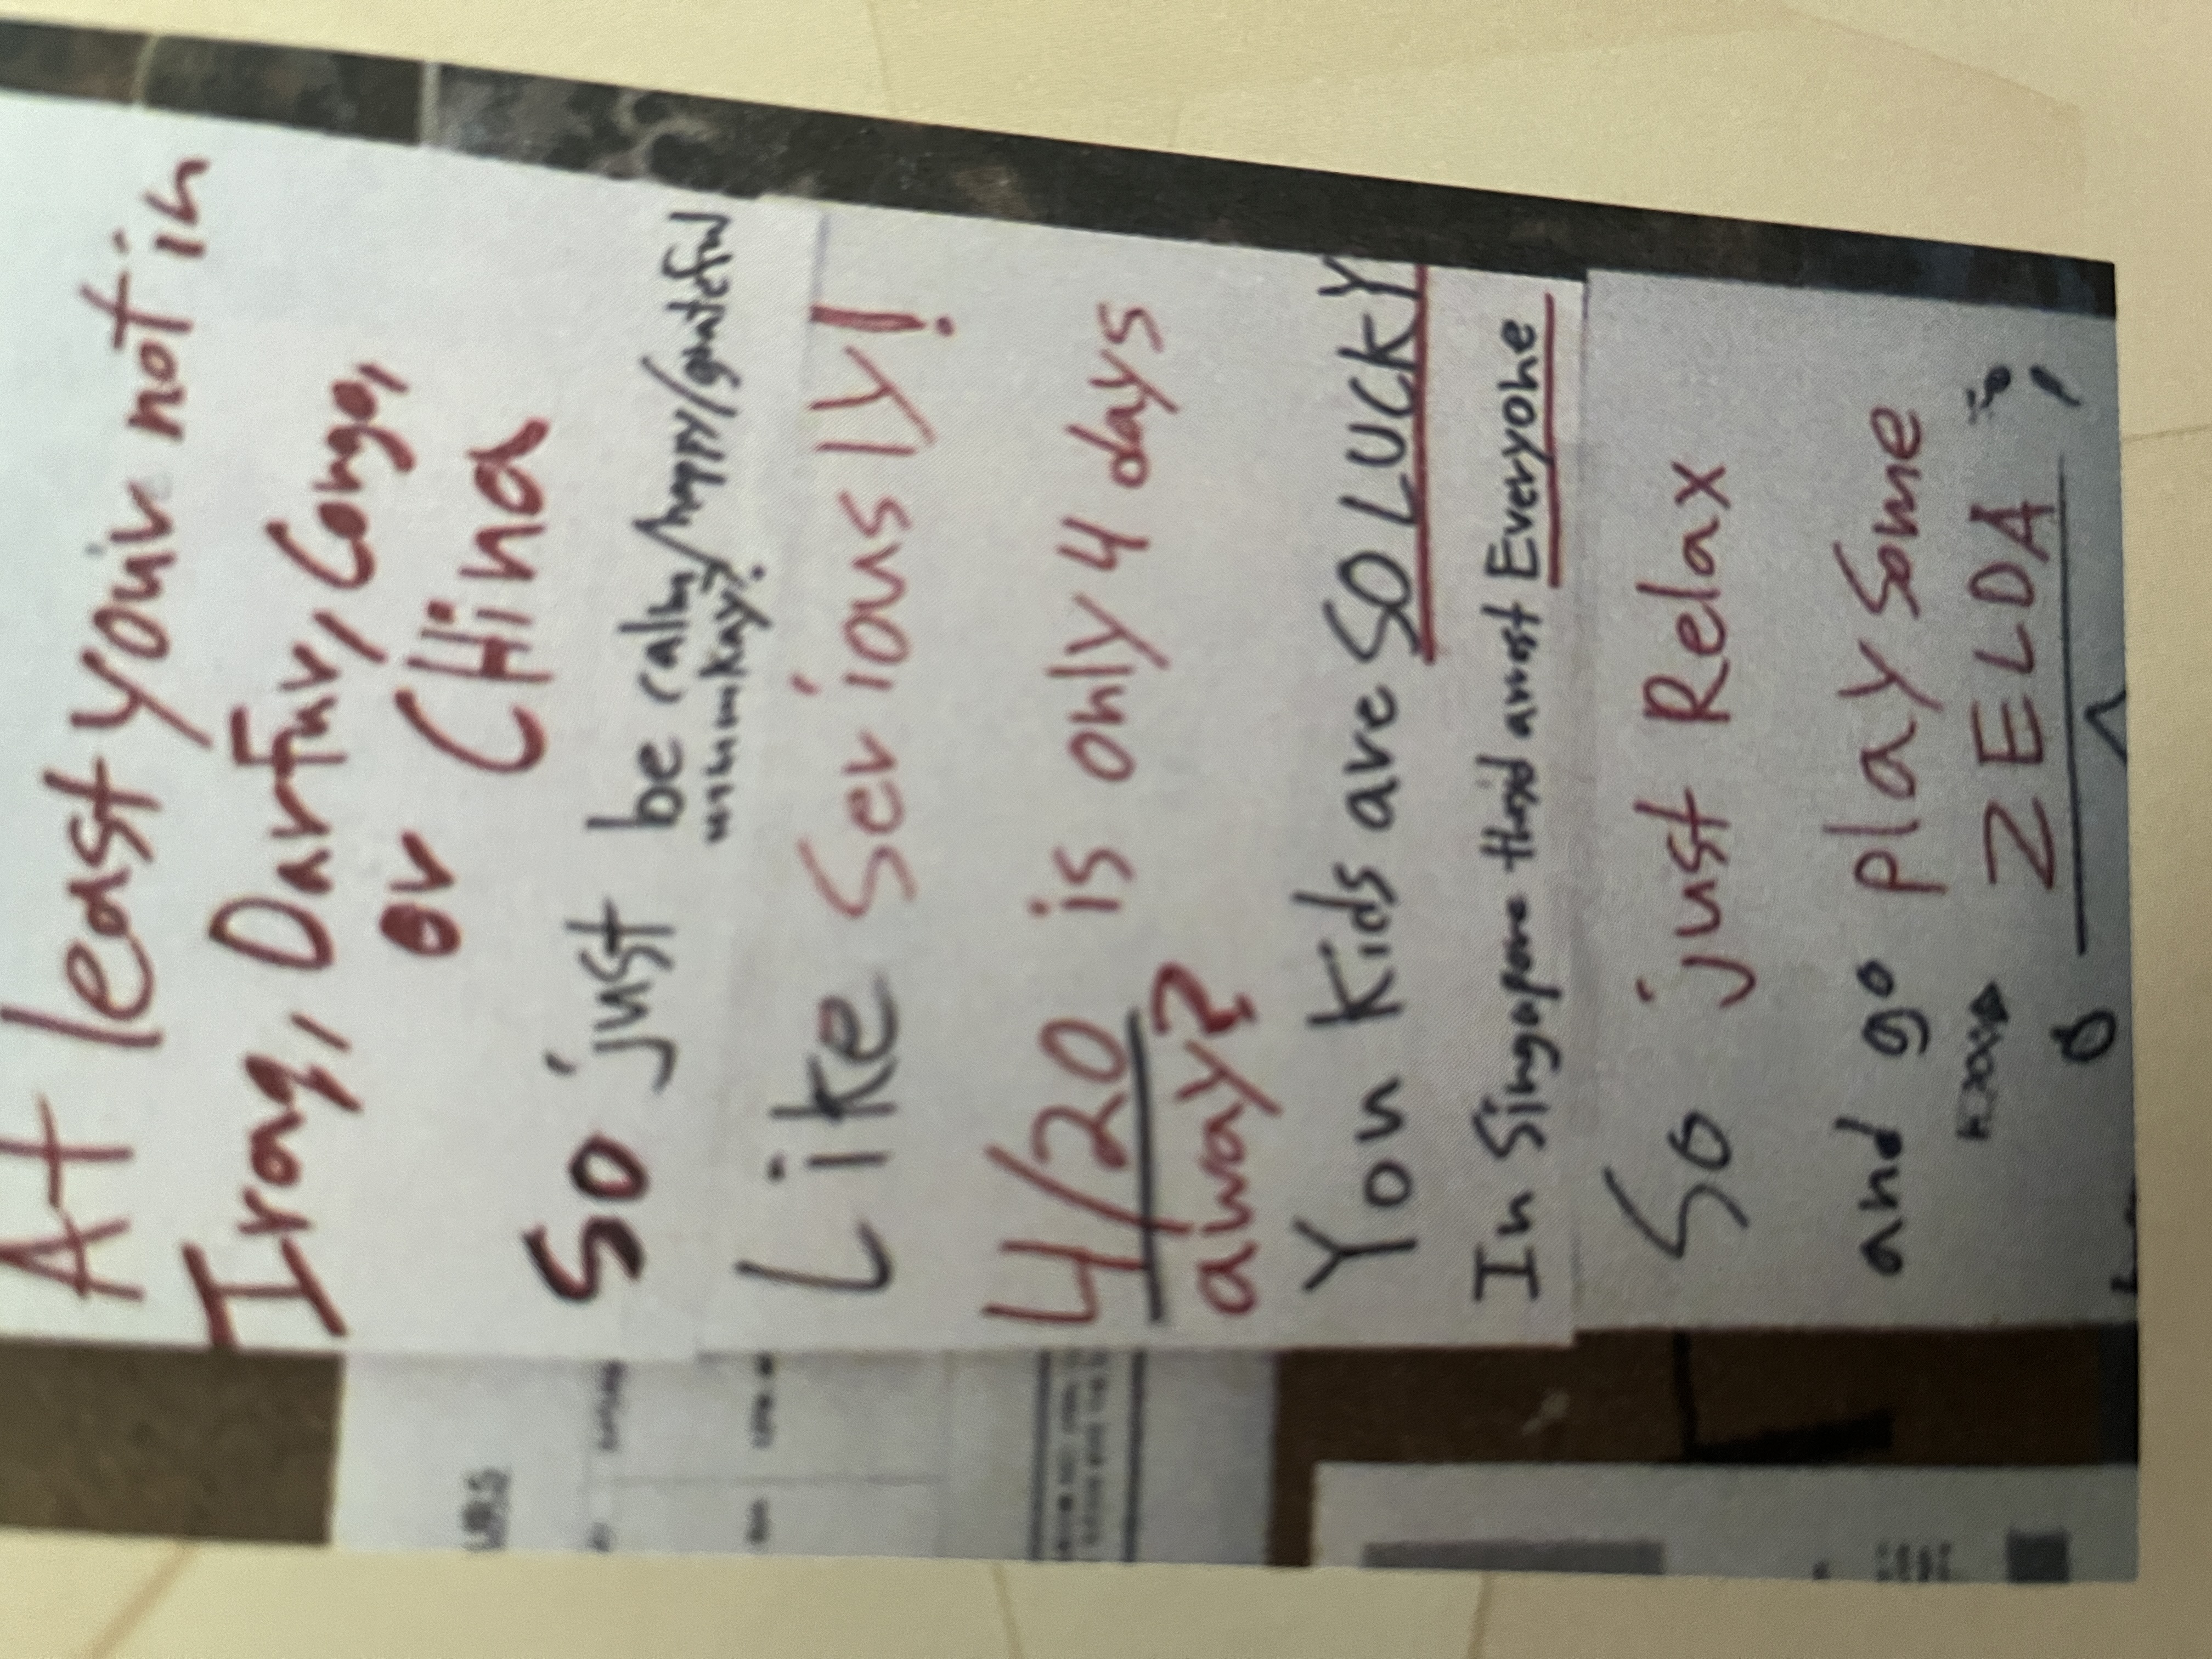 At least your not in
Iraq, Darfur, Congo,
or CHina
So just be calm/happy/grateful
mmmkay?
Like Seriously!
4/20 is only 4 days
away?
You kids are SO LUCKY
In Singapore they'd arrest Everyone
So just Relax
and go play some
ZELDA